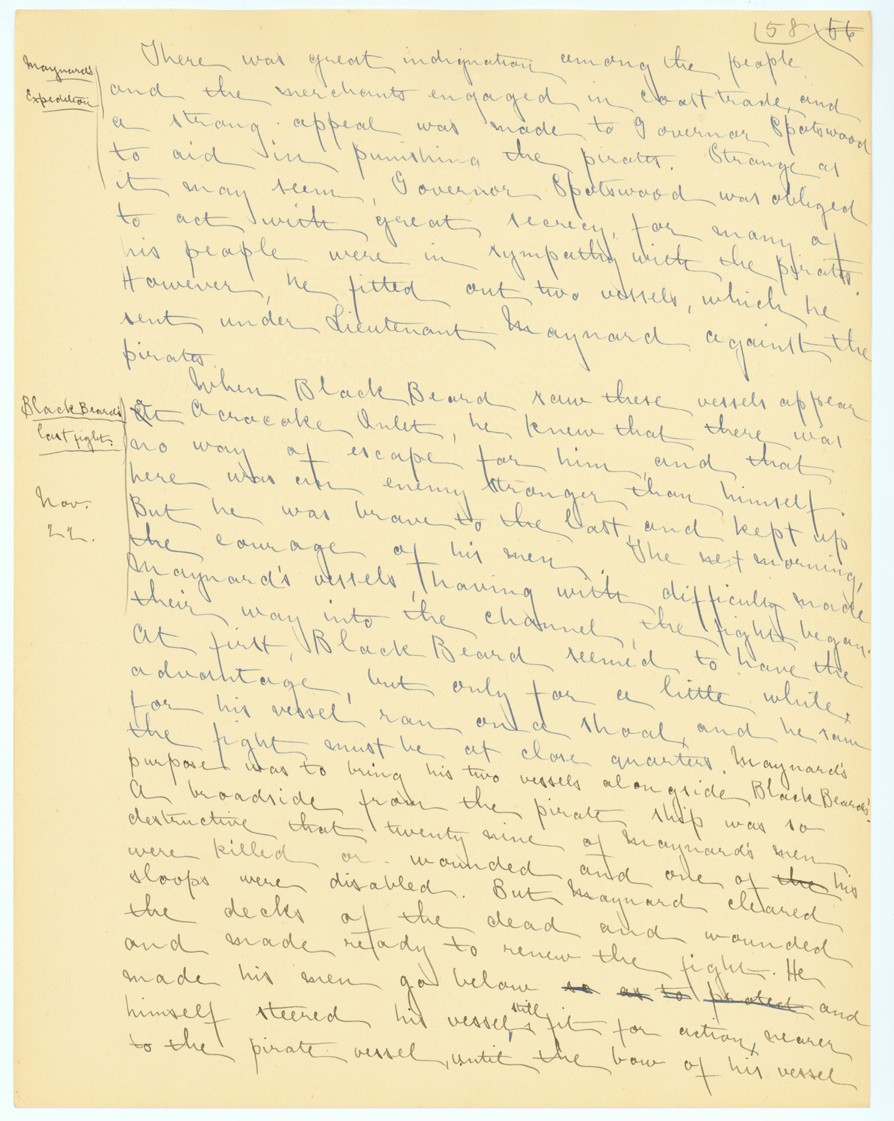 58 56
There was great indignation among the people
Maynard's
Expedition
and the merchants engaged in coast trade, and
a strong appeal was made to Governor Spotswood
to aid in punishing the pirates. Strange as
it may seem, Governor Spotswood was obliged
to act with great secrecy, for many of
his people were in sympathy with the pirates.
However, he fitted out two vessels, which he
sent under Lieutenant Maynard against the
pirates.
When Black Beard saw these vessels appear
Black Beard's
last fight.
Nov.
22.
at Acracoke Inlet, he knew that there was
no way of escape for him and that
here was an enemy stronger than himself.
But he was brave to the last, and kept up
the courage of his men. The next morning,
Maynard's vessels, having with difficulty made
their way into the channel, the fight began.
At first, Black Beard seemed to have the
advantage, but only for a little while,
for his vessel ran on a shoal, and he saw
the fight must be at close quarters. Maynard's
purpose was to bring his two vessels alongside Black Beard's.
A broadside from the pirate ship was so
destructive that twenty nine of Maynard's men
were killed or wounded and one of the his
sloops were disabled. But Maynard cleared
the decks of the dead and wounded
and made ready to renew the fight. He
made his men go below so as to protect and
himself steered his vessel, still fit for action, nearer
to the pirate vessel, until the bow of his vessel